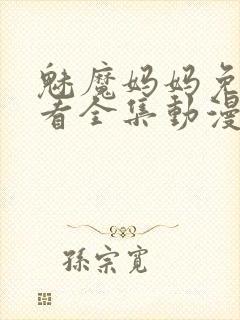 魅魔妈妈免
看全集動漫
孫宗寬